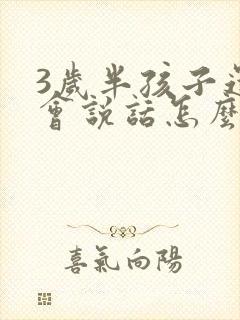 3歲半孩子
會說話怎麼
喜氣向陽